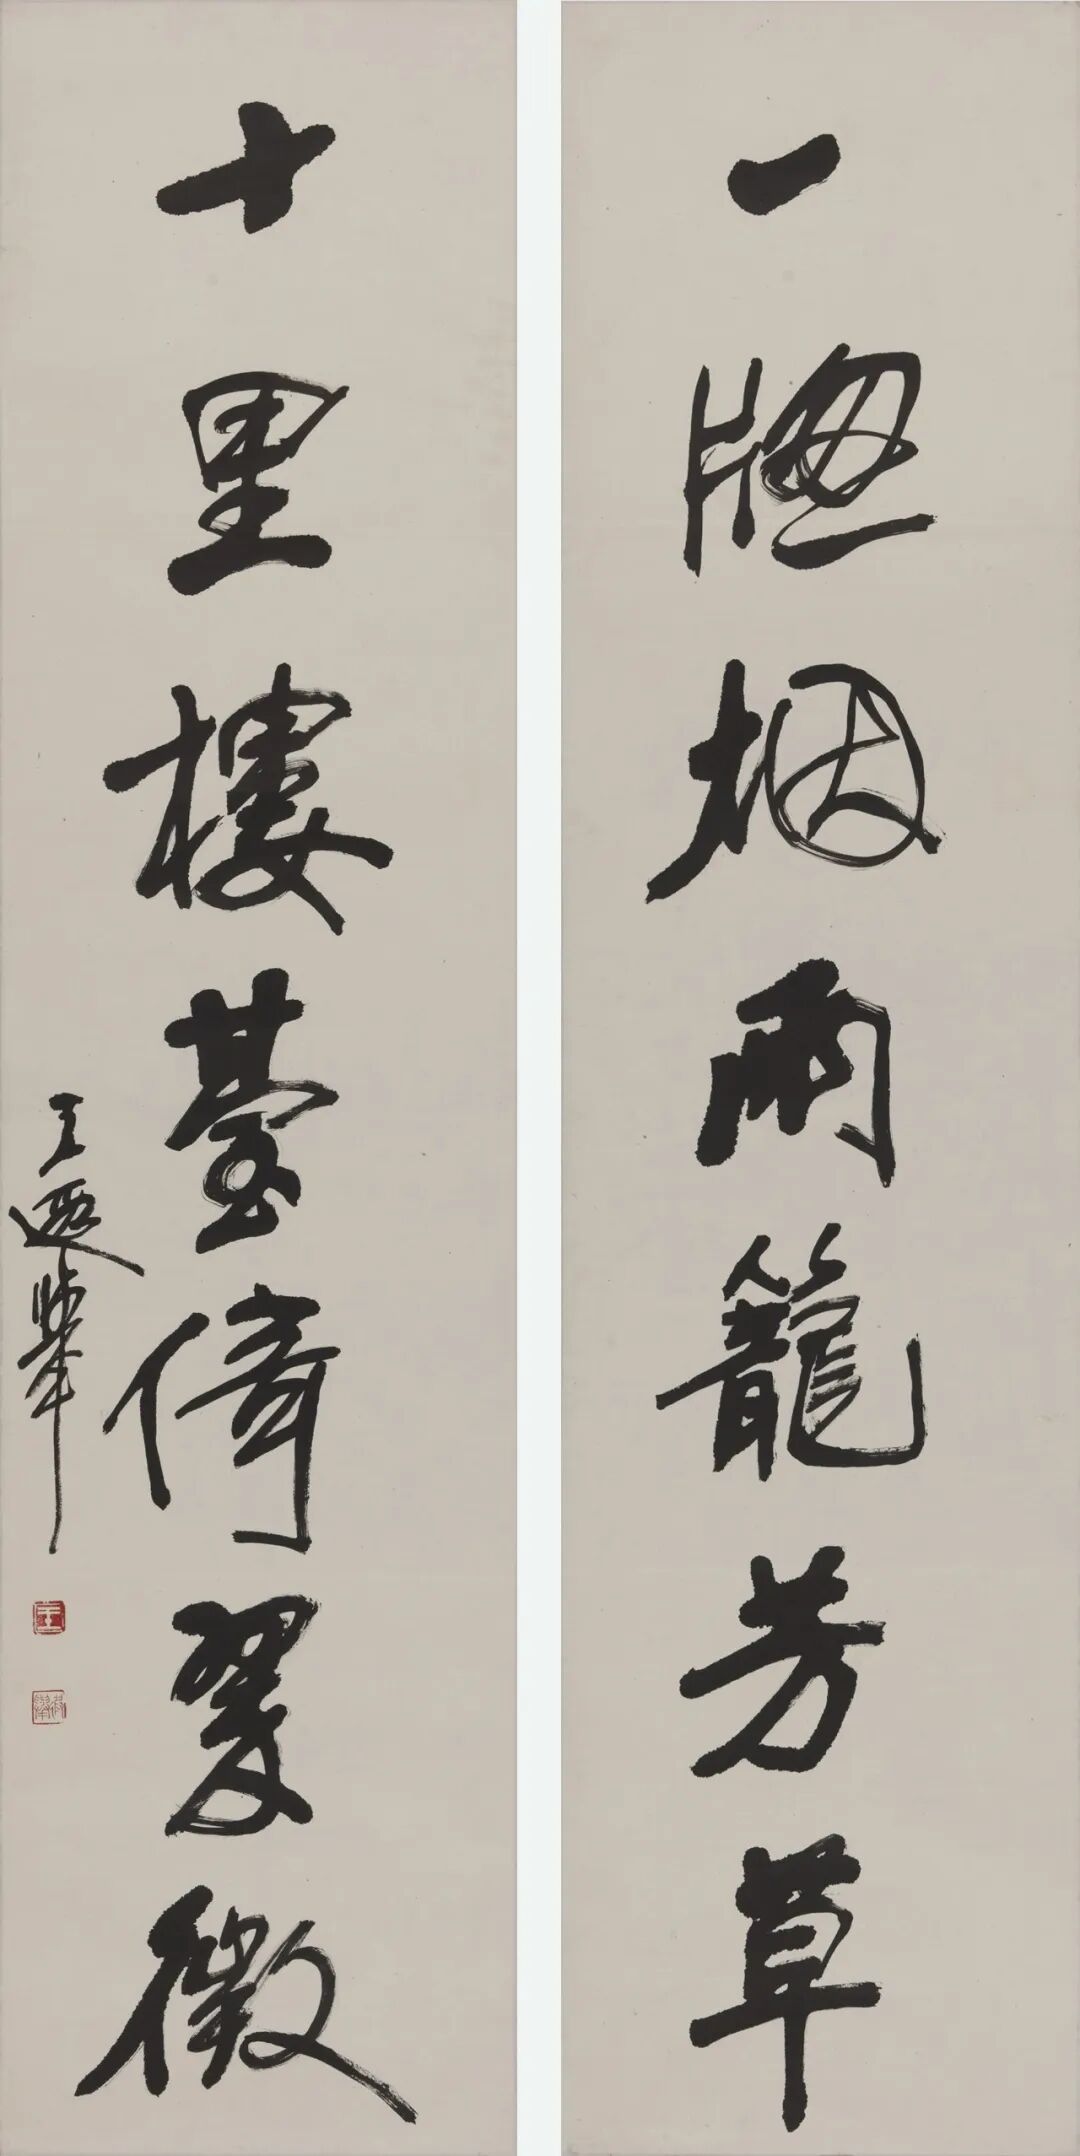 一牕烟雨籠芳草
十里樓臺倚翠微
王遐舉
王